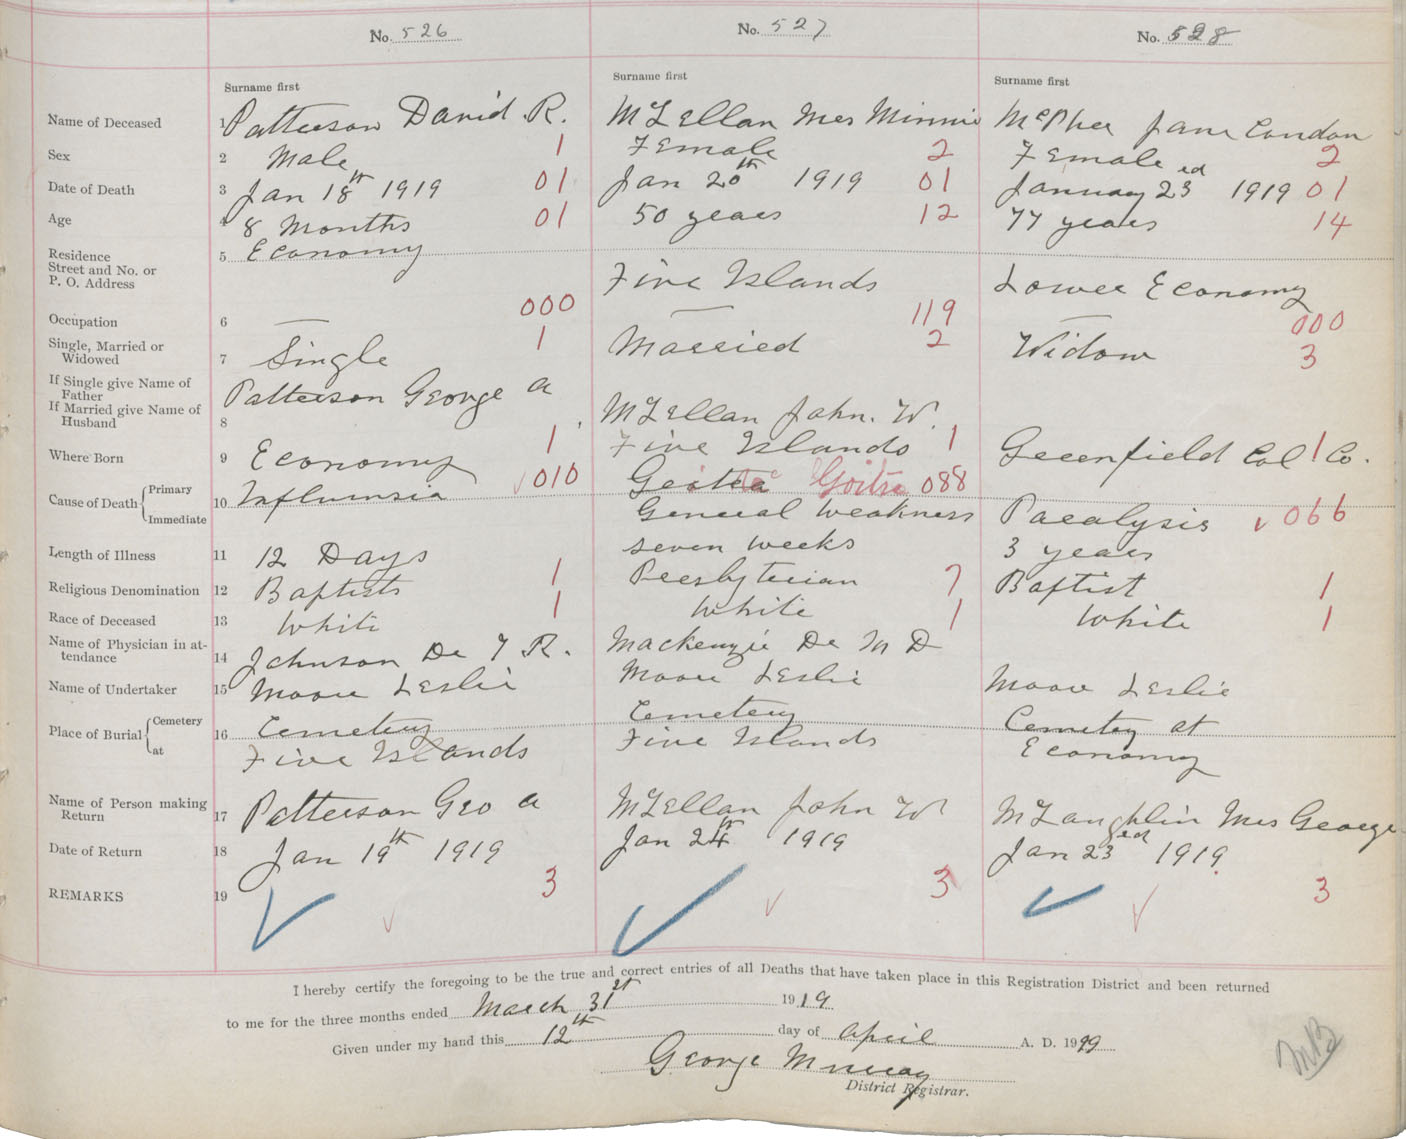 No. 526 No. 527 No. 528
Surname first Surname first Surname first
Name of Deceased 1 Patterson David R. McLellan Mrs Minnie McPhee Jane Condon
Sex 2 Male 1 Female 2 Female 2
Date of Death 3 Jan 18th 1919 01 Jan 20th 1919 01 January 23rd 1919 01
Age 4 8 Months 01 50 years 12 77 years 14
Residence
Street and No. or
P. O. Address 5 Economy Five Islands Lower Economy
Occupation 6 — 000 — 119 — 000
Single, Married or
Widowed 7 Single 1 Married 2 Widow 3
If Single give Name of
Father
If Married give Name of
Husband 8 Patterson George A McLellan John. W.
Where Born 9 Economy 1 Five Islands 1 Greenfield Col Co. 1
Cause of Death Primary
Immediate 10 Influensia 010 Goitre 088
General Weakness Paralysis 066
Length of Illness 11 12 Days seven weeks 3 years
Religious Denomination 12 Baptists 1 Presbyterian 7 Baptist 1
Race of Deceased 13 White 1 White 1 White 1
Name of Physician in at-
tendance 14 Johnson Dr T R. Mackenzie Dr M D
Name of Undertaker 15 Moore Leslie Moore Leslie Moore Leslie
Place of Burial Cemetery
at 16 Cemetery Cemetery Cemetery at
Five Islands Five Islands Economy
Name of Person making
Return 17 Patterson Geo A McLellan John W McLaughlin Mrs George
Date of Return 18 Jan 19th 1919 Jan 24th 1919 Jan 23rd 1919.
REMARKS 19 3 3 3
I hereby certify the foregoing to be the true and correct entries of all Deaths that have taken place in this Registration District and been returned
to me for the three months ended March 31st 1919
Given under my hand this 12th day of April A. D. 1919
George Murray
District Registrar.